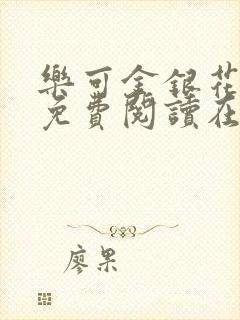 樂可金銀花
免費閱讀在
廖果